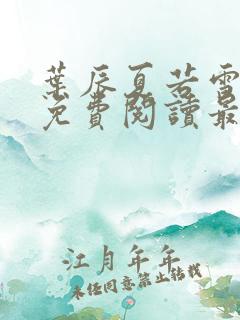 葉辰夏若雪
免費閱讀最
江月年年
未经同意禁止转载